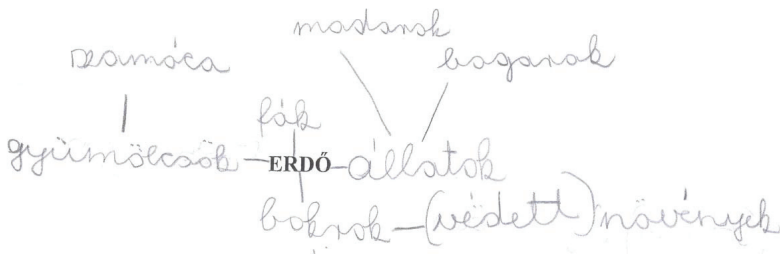 madarak
szamóca bogarak
fák
gyümölcsök ERDŐ állatok
bokrok - (védett) növények